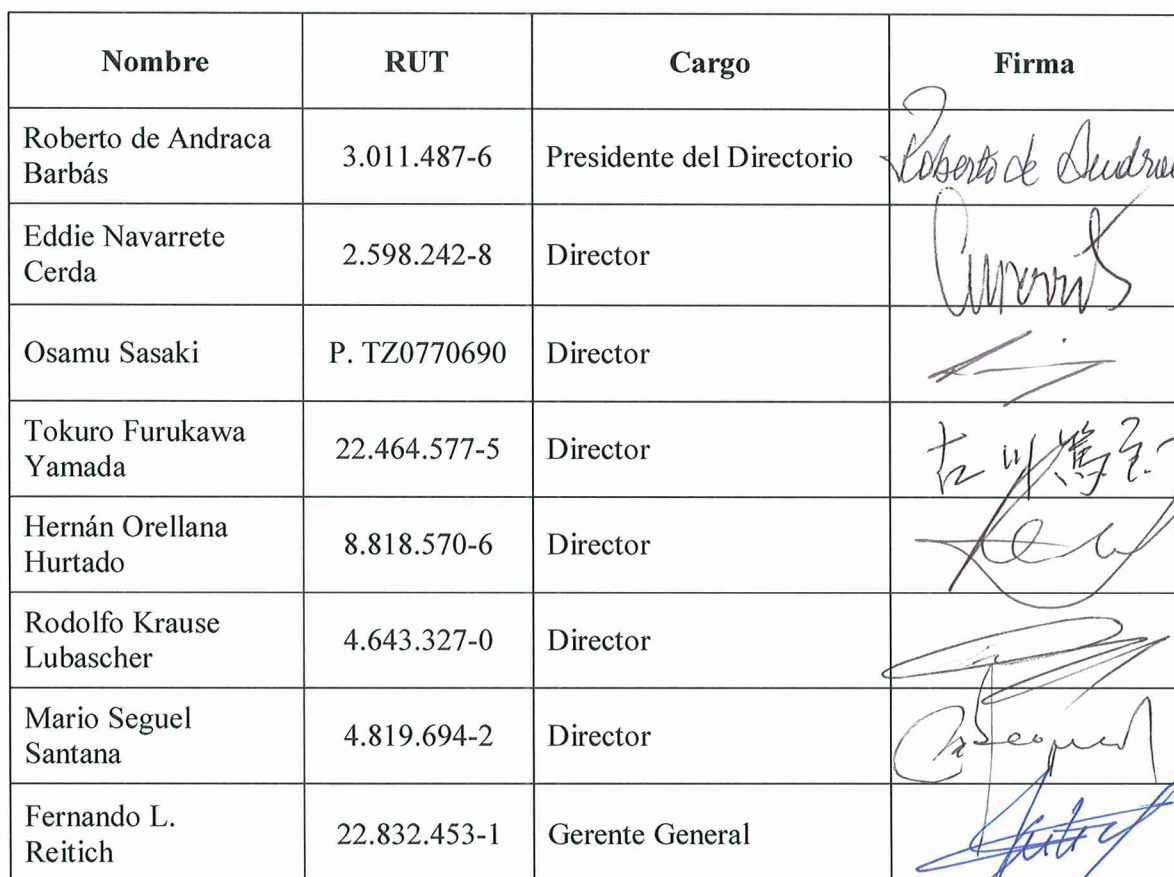 Nombre RUT Cargo Firma
Roberto de Andraca
Barbás
3.011.487-6 Presidente del Directorio Roberto de Andraca
Eddie Navarrete
Cerda
2.598.242-8 Director
Osamu Sasaki P. TZ0770690 Director
Tokuro Furukawa
Yamada
22.464.577-5 Director 古川篤
Hernán Orellana
Hurtado
8.818.570-6 Director
Rodolfo Krause
Lubascher
4.643.327-0 Director
Mario Seguel
Santana
4.819.694-2 Director
Fernando L.
Reitich
22.832.453-1 Gerente General